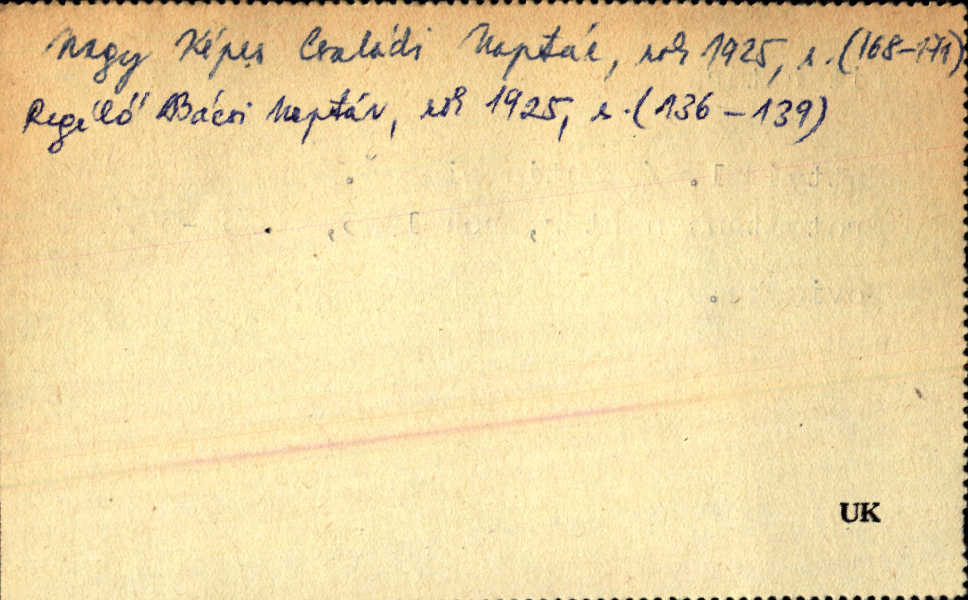 Nagy Képes Családi Naptár, rok 1925, s. (168-171)
Regélő Bácsi Naptár, rok 1925, s. (136-139)
UK